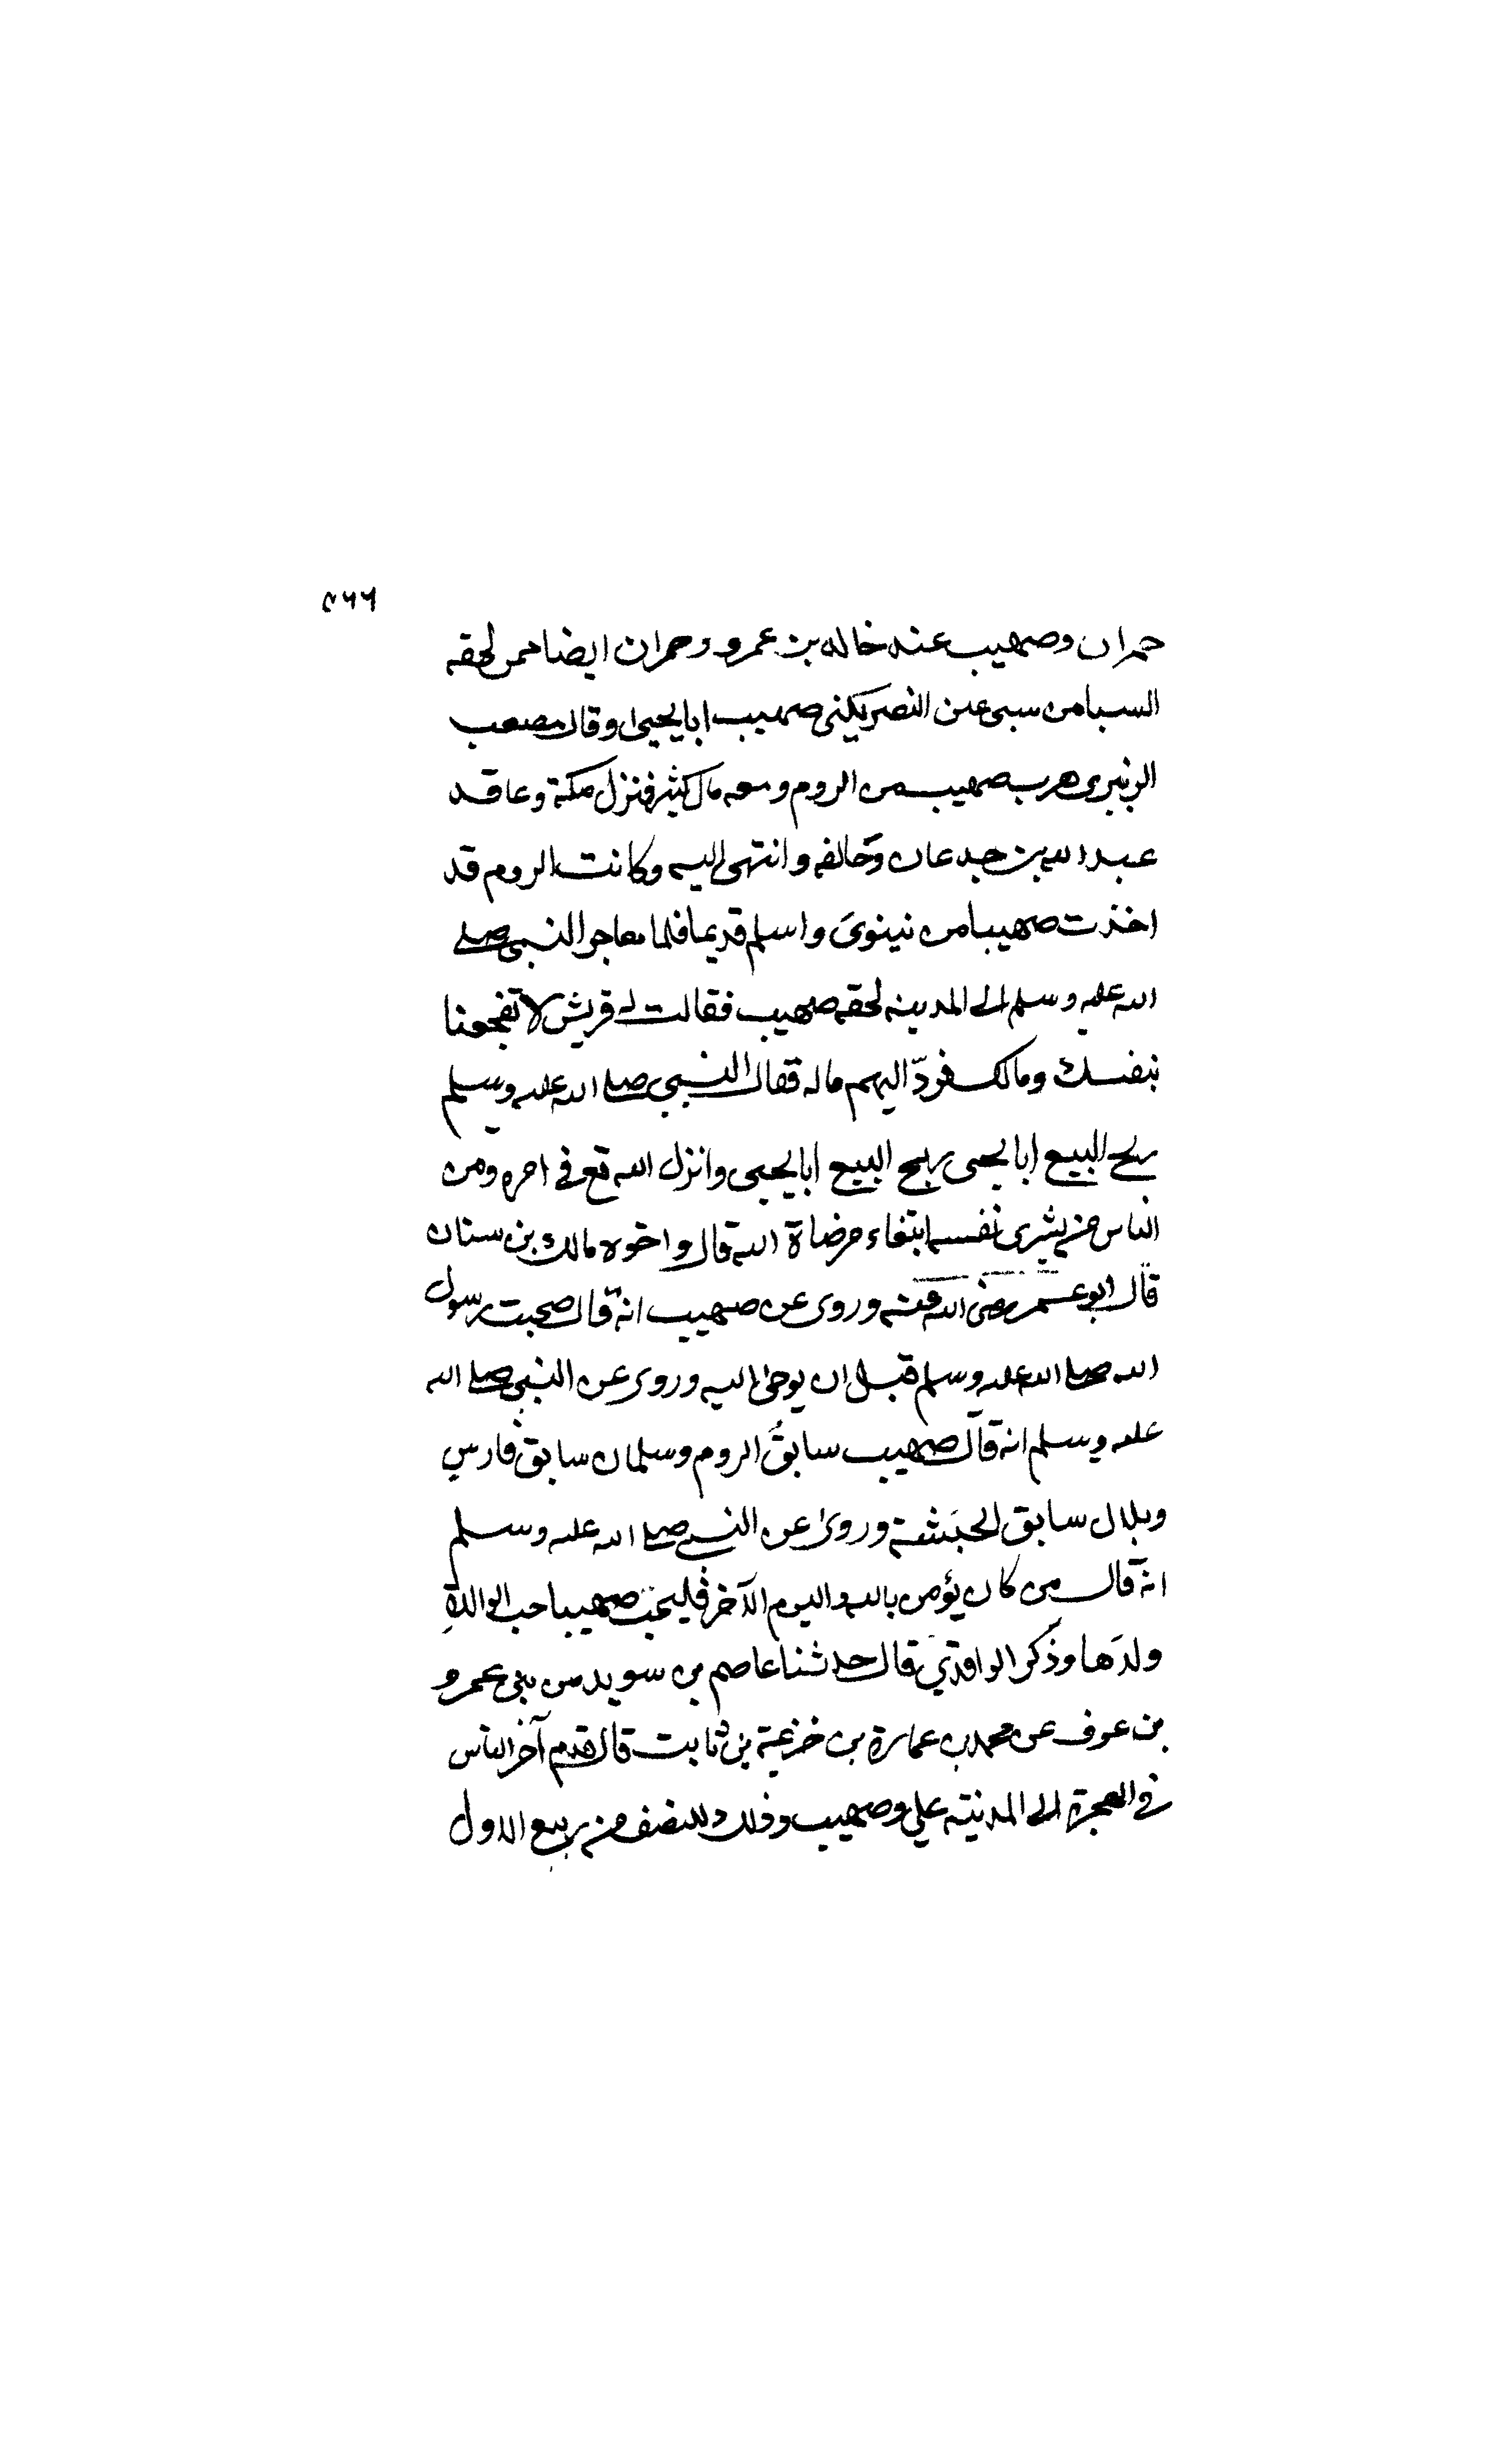 ٥٦٦
حمران وصهيب عنه خاله بن عمرو وحمران ايضا ممن لحقه
السبا من سبى عين النصر يكنى صهيب ابا يحيى وقال مصعب
الزبيرى هرب صهيب من الروم ومعه مال كثير فنزل مكة وعاقد
عبد الله بن جدعان وحالفه وانتهى اليه وكانت الروم قد
اخذت صهيبا من نينوى واسلم قديما فلما هاجر النبى صلى
الله عليه وسلم الى المدينه لحقه صهيب فقالت له قريش لا تفجعنا
بنفسك ومالك فردّ اليهم ماله فقال النبى صلى الله عليه وسلم
ربح البيع ابا يحيى ربح البيع ابا يحيى وانزل الله تع فى امره ومن
الناس من يشرى نفسه ابتغاء مرضاة الله قال واخوه مالك بن سنان
قال ابو عمر رضى الله عنه وروى عن صهيب انه قال صحبت رسول
الله صلى الله عليه وسلم قبل ان يوحى اليه وروى عن النبى صلى الله
عليه وسلم انه قال صهيب سابقُ الروم وسلمان سابق فارس
وبلال سابق الحبَشة وروى عن النبى صلى الله عليه وسلم
انه قال من كان يؤمن بالله واليوم الآخر فليحب صهيبا حب الوالدةِ
ولدَها وذكر الواقدي قال حدثنا عاصم بن سويد من بنى عمرو
بن عوف عن محمد بن عمارة بن خزيمة بن ثابت قال قدم آخر الناس
فى الهجرة الى المدينة علي وصهيب وذلك للنصف من ربيع الاول